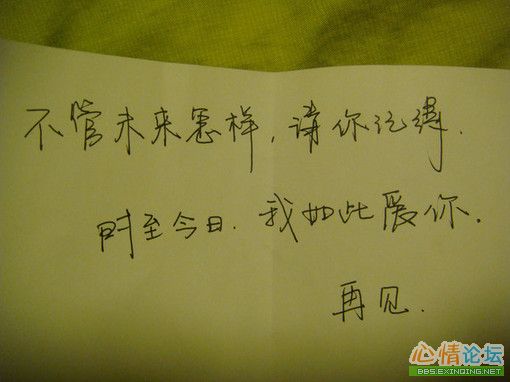 不管未来怎样，请你记得.
时至今日.我如此爱你.
再见.
心情论坛
BBS.EXINQING.NET